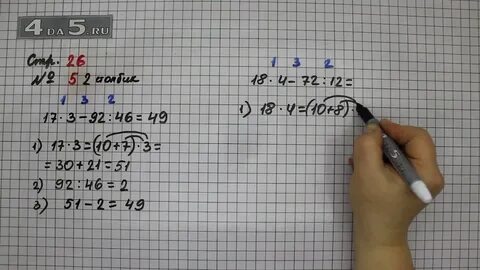 4 DA 5.RU
Стр. 26
№ 5 2 столбик
1 3 2
17 · 3 – 92 : 46 = 49
1) 17 · 3 = (10 + 7) · 3 =
= 30 + 21 = 51
2) 92 : 46 = 2
3) 51 – 2 = 49
1 3 2
18 · 4 – 72 : 12 =
1) 18 · 4 = (10 + 8) ·